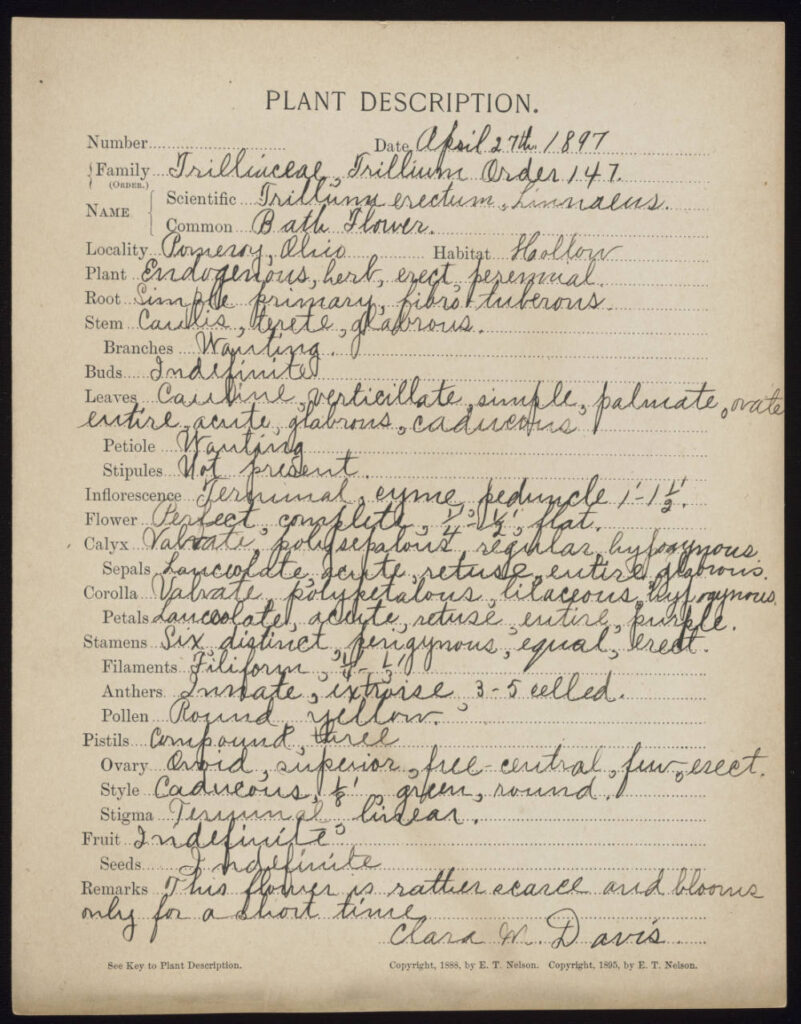 PLANT DESCRIPTION.
Number
Date April 27th 1897
Family Trilliaceae, Trillium Order 147.
(Order.)
Name
Scientific Trillium erectum, Linnaeus.
Common Bath Flower.
Locality Pomeroy, Ohio Habitat Hollow
Plant Endogenous, herb, erect, perennial.
Root Simple primary, fibro-tuberous.
Stem Caulis, terete, glabrous.
Branches Wanting.
Buds Indefinite
Leaves Cauline, verticillate, simple, palmate, ovate
entire, acute, glabrous, caducous
Petiole Wanting
Stipules Not present.
Inflorescence Terminal, cyme, peduncle 1'-1 1/2'.
Flower Perfect, complete, flat.
Calyx Valvate, polysepalous, regular, hypogynous
Sepals Lanceolate, acute, retuse, entire, glabrous.
Corolla Valvate, polypetalous, liliaceous, hypogynous.
Petals Lanceolate, acute, retuse, entire, purple.
Stamens Six, distinct, perigynous, equal, erect.
Filaments Filiform,
Anthers Innate, extrorse, 3-5 celled.
Pollen Round, yellow.
Pistils Compound, three
Ovary Ovoid, superior, free-central, few, erect.
Style Caducous, 1/8', green, round.
Stigma Terminal, linear.
Fruit Indefinite
Seeds Indefinite
Remarks This flower is rather scarce and blooms
only for a short time
Clara M. Davis.
See Key to Plant Description.
Copyright, 1888, by E. T. Nelson. Copyright, 1895, by E. T. Nelson.